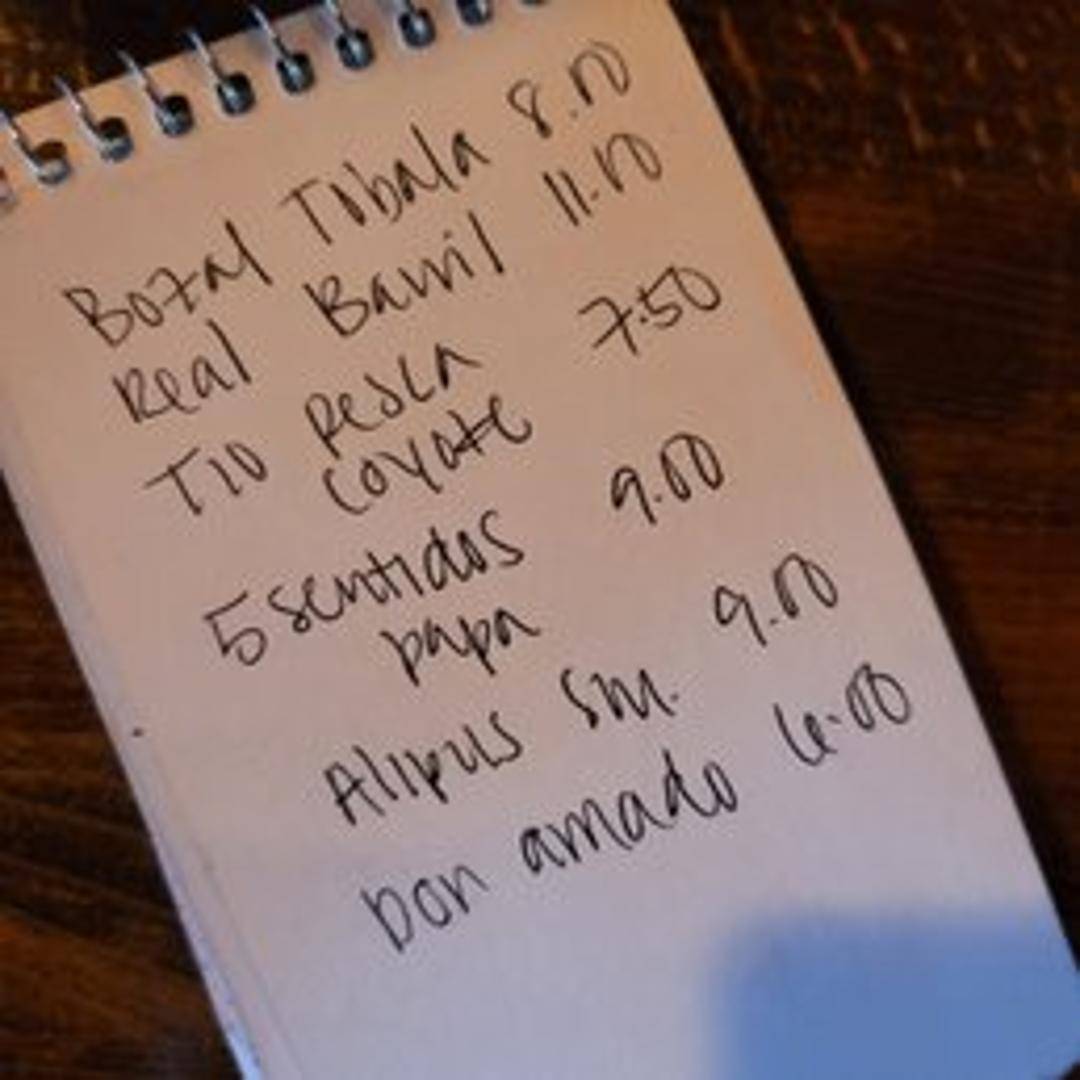 Bozal Tobala 8.00
Real Barril 11.00
Tio Pesca 7.50
Coyote
5 sentidos 9.00
papa
Alipus Snu. 9.00
Don amado 6.00